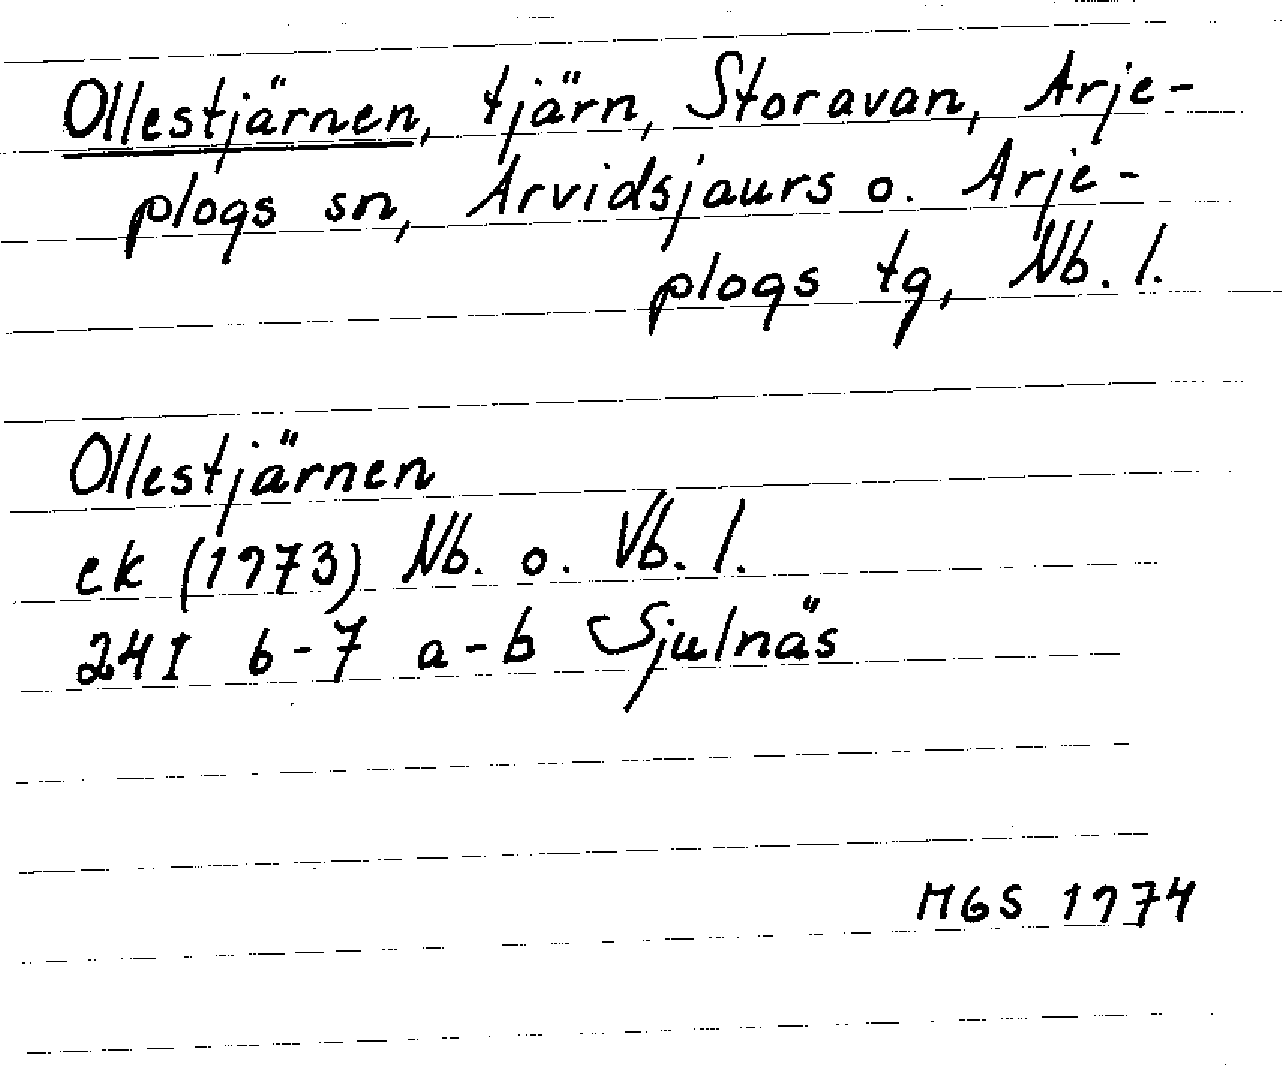 Ollestjärnen, tjärn, Storavan, Arje-
plogs sn, Arvidsjaurs o. Arje-
plogs tg, Nb. l.
Ollestjärnen
ek (1973) Nb. o. Vb. l.
24I 6-7 a-b Sjulnäs
MGS 1974